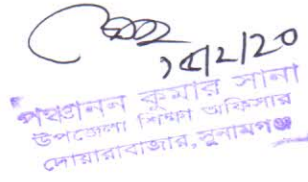 ১৫/২/২০
পঞ্চানন কুমার সানা
উপজেলা শিক্ষা অফিসার
দোয়ারাবাজার, সুনামগঞ্জ